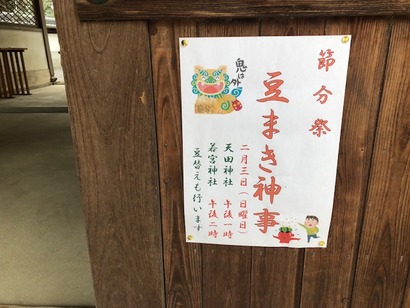 節分祭
豆まき神事
鬼は外
二月三日（日曜日）
天田神社 午後一時
若宮神社 午後二時
豆替えも行います